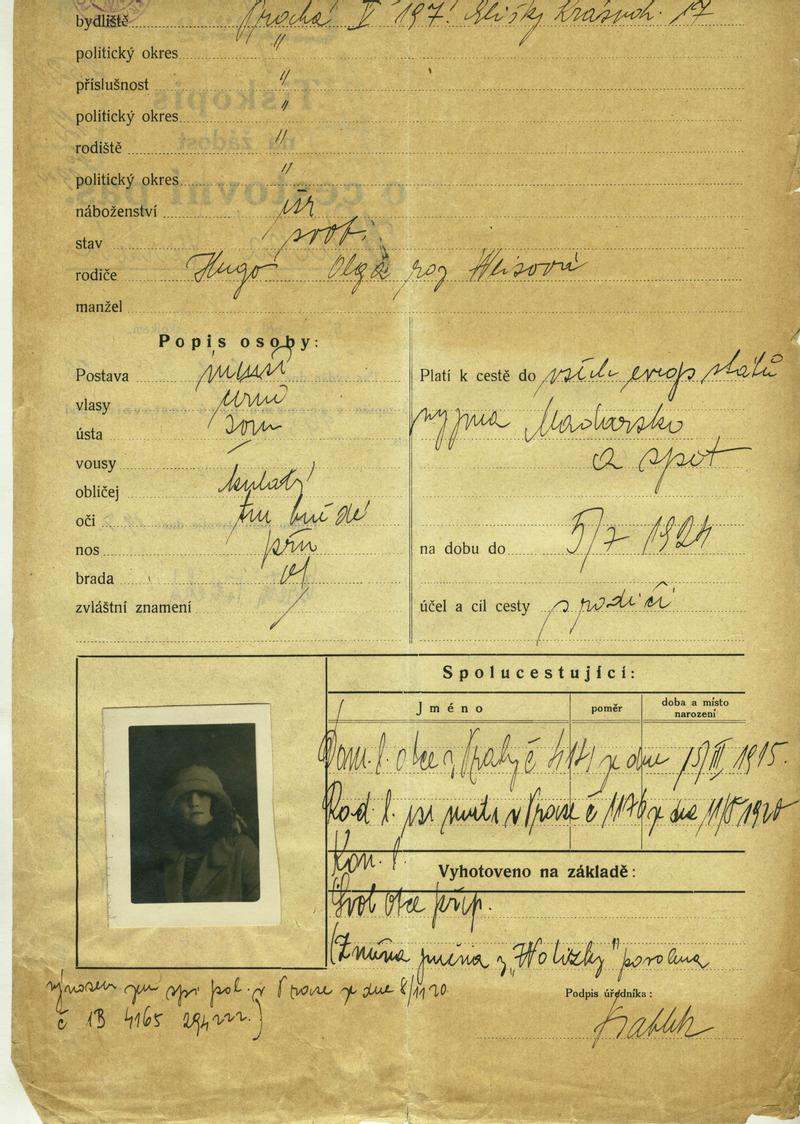 bydliště Praha V 197. Elišky Krásnoh. 17
politický okres "
příslušnost "
politický okres "
rodiště "
politický okres "
náboženství isr
stav svob.
rodiče Hugo Olga roz Weisová
manžel
Popis osoby:
Postava menší
vlasy černé
ústa soum
vousy —
obličej kulatý
oči tm hnědé
nos přim
brada
zvláštní znamení /
Platí k cestě do všech evrop států
vyjma Maďarsko
a zpět
na dobu do 5/7 1924
účel a cíl cesty s rodiči
Spolucestující:
Jméno poměr doba a místo narození
Dom. l. otce z Prahy č 414 ze dne 15/III. 1915.
Rod. l. isr v Praze č 1176 ze dne 11/5 1920
Kon. l.
Vyhotoveno na základě:
Svol otce přip.
(Změna jména z „Wolitzky" povolena
výnosem zem spr pol. v Praze ze dne 8/11 20
č 1B 4165 294
Podpis úředníka: